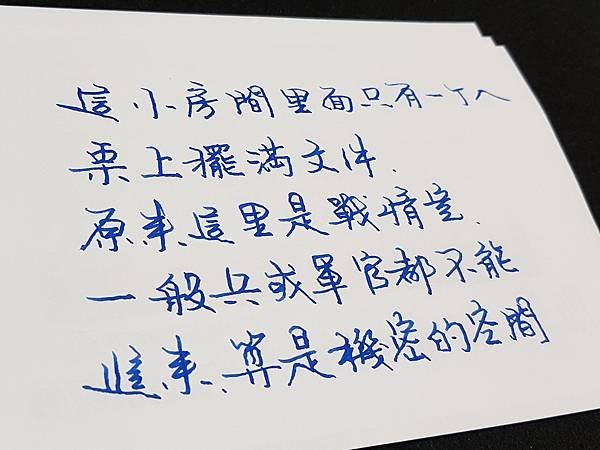 這小房間里面只有一个人
桌上擺滿文件.
原来這里是戰情室.
一般兵或軍官都不能
進来.算是機密的空間